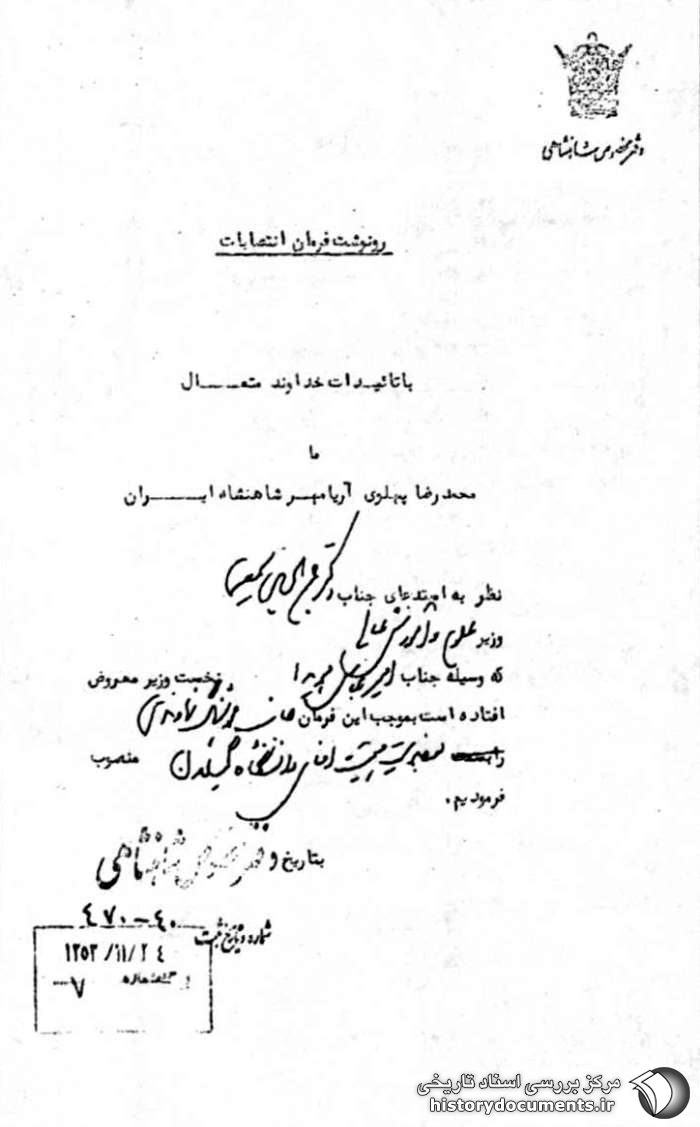 دفتر مخصوص شاهنشاهی
رونوشت فرمان انتصابات
باتائیدات خداوند متعال
ما
محمد رضا پهلوی آریامهر شاهنشاه ایران
نظر به استدعای جناب دکتر
وزیر علوم و آموزش عالی
که وسیله جناب امیر عباس هویدا نخست وزیر معروض
افتاده است بموجب این فرمان
را بسمت عضویت هیئت امنای دانشگاه منصوب
فرمودیم.
بتاریخ دفتر مخصوص شاهنشاهی
شماره و تاریخ ثبت ۴۷۰-۴۰
۱۳۵۳/۱۱/۲۴
۷-
مرکز بررسی اسناد تاریخی
historydocuments.ir